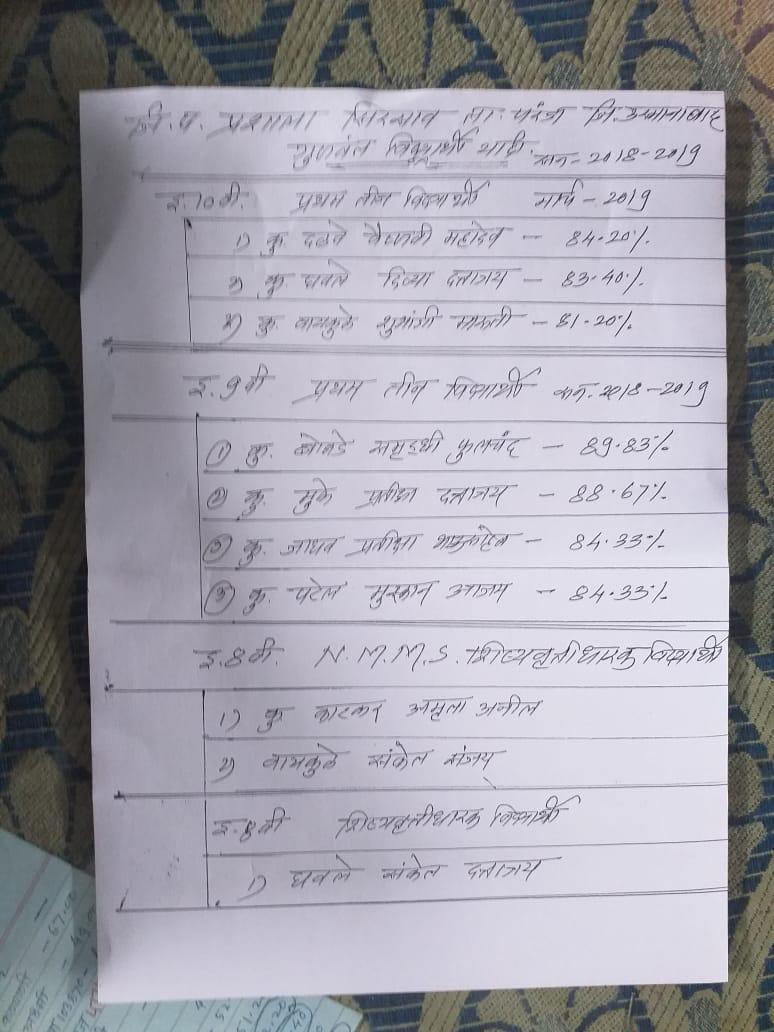 जि. प. प्रशाला सिरसाव ता. परंडा जि. उस्मानाबाद
गुणवंत विद्यार्थी यादी. सन - 2018-2019
इ. 10 वी. प्रथम तीन विद्यार्थी मार्च - 2019
1) कु. ढवळे वैष्णवी महादेव - 84.20%
२) कु. घवले दिव्या दत्तात्रय - 83.40%
३) कु. वायकुळे शुभांगी मारुती - 81.20%
इ. 9 वी प्रथम तीन विद्यार्थी सन. 2018-2019
① कु. बोबडे समृध्दी फुलचंद - 89.83%
② कु. मुके प्रतिक्षा दत्तात्रय - 88.67%
③ कु. जाधव प्रतीक्षा - 84.33%
③ कु. पटेल मुस्कान आजम - 84.33%
इ. 8 वी. N.M.M.S. शिष्यवृत्तीधारक विद्यार्थी
1) कु काटकर अमृता अनील
२) वायकुळे संकेत संजय
इ. 8 वी शिष्यवृत्तीधारक विद्यार्थी
1) घवले संकेत दत्तात्रय
- 67.00